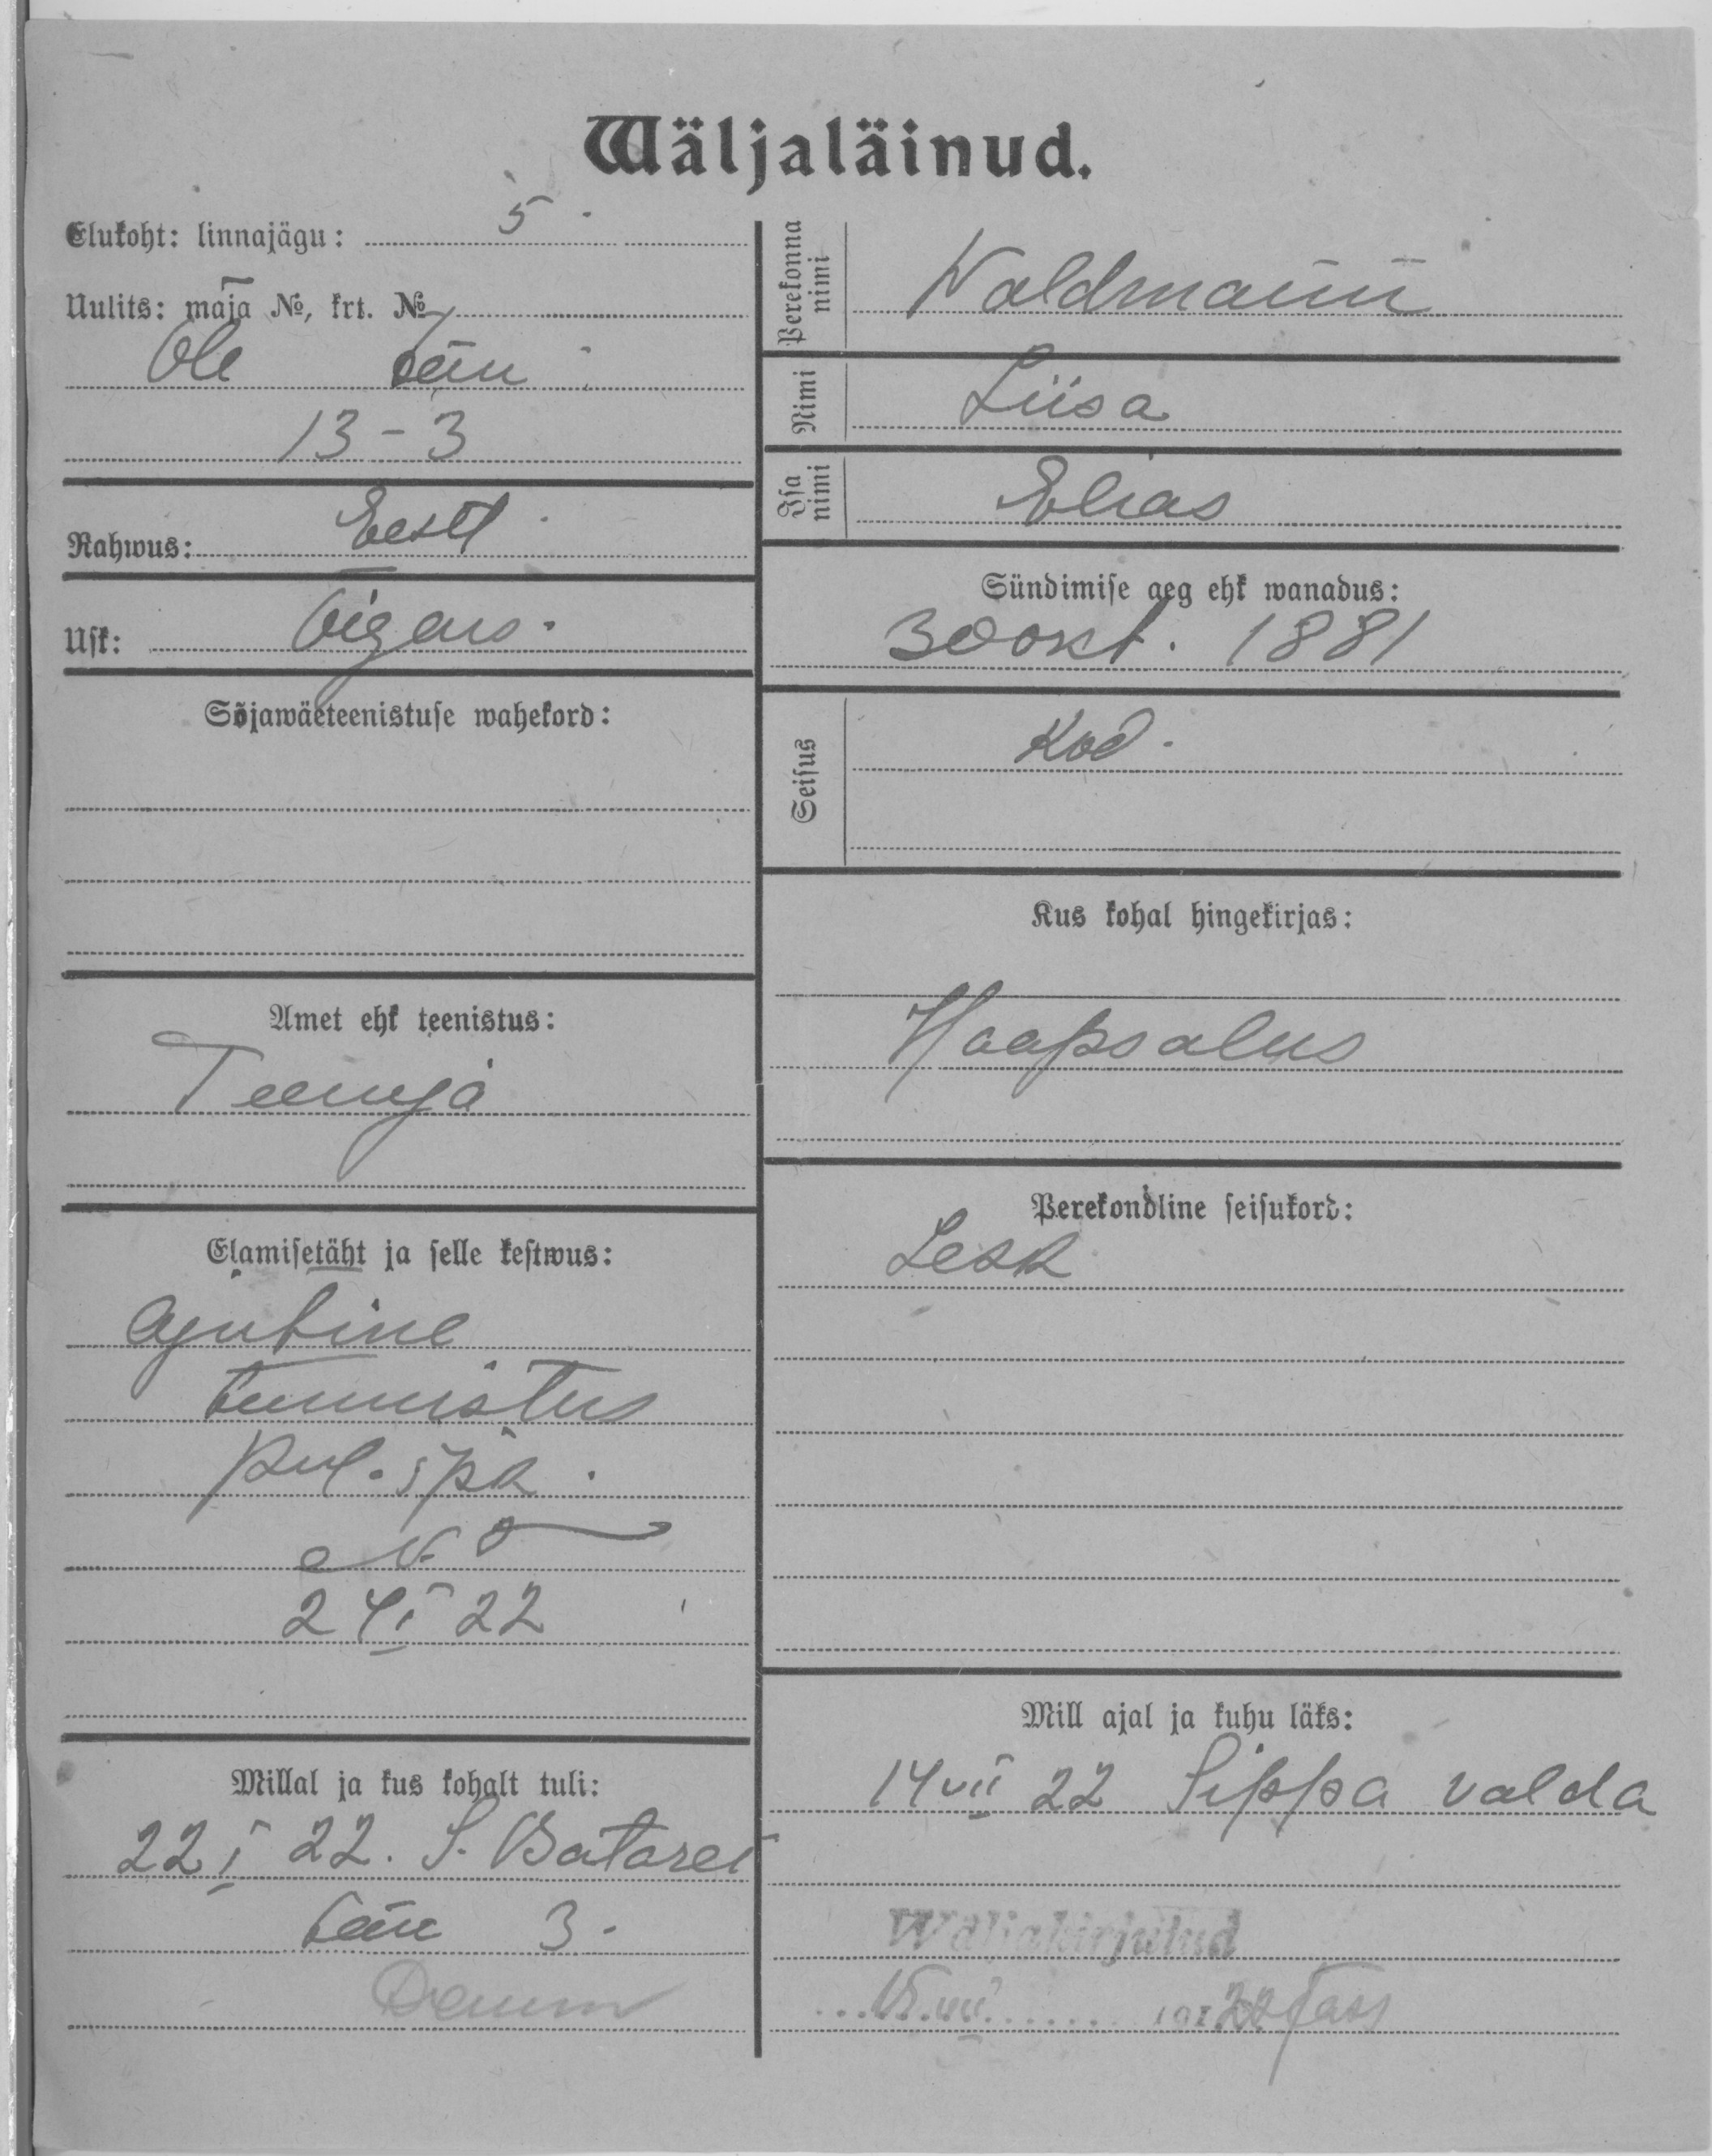 Wäljaläinud.
Elukoht: linnajägu: 5
Uulits: maja №, krt. №
Ole tän
13-3
Rahwus: Eestl
Usk: õigeus.
Sõjawäeteenistuse wahekord:
Amet ehk teenistus:
Teenija
Elamisetäht ja selle kestwus:
Ajutine
tunnistus
24 I 22
Millal ja kus kohalt tuli:
22 I 22. S. Batarei
tän 3.
Perekonna nimi Waldmann
Nimi Liisa
Isa nimi Elias
Sündimise aeg ehk wanadus:
30 okt. 1881
Seisus Kod.
Kus kohal hingekirjas:
Haapsalus
Perekondline seisukord:
Lesk
Mill ajal ja kuhu läks:
14 VII 22 Sippa valda
Wäljakirjutud
15. VII 192